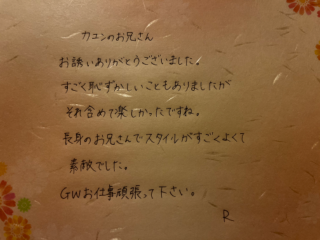 カユンのお兄さん
お誘いありがとうございました！
すごく恥ずかしいこともありましたが
それ含めて楽しかったですね。
長身のお兄さんでスタイルがすごくよくて
素敵でした。
GWお仕事頑張って下さい。
R